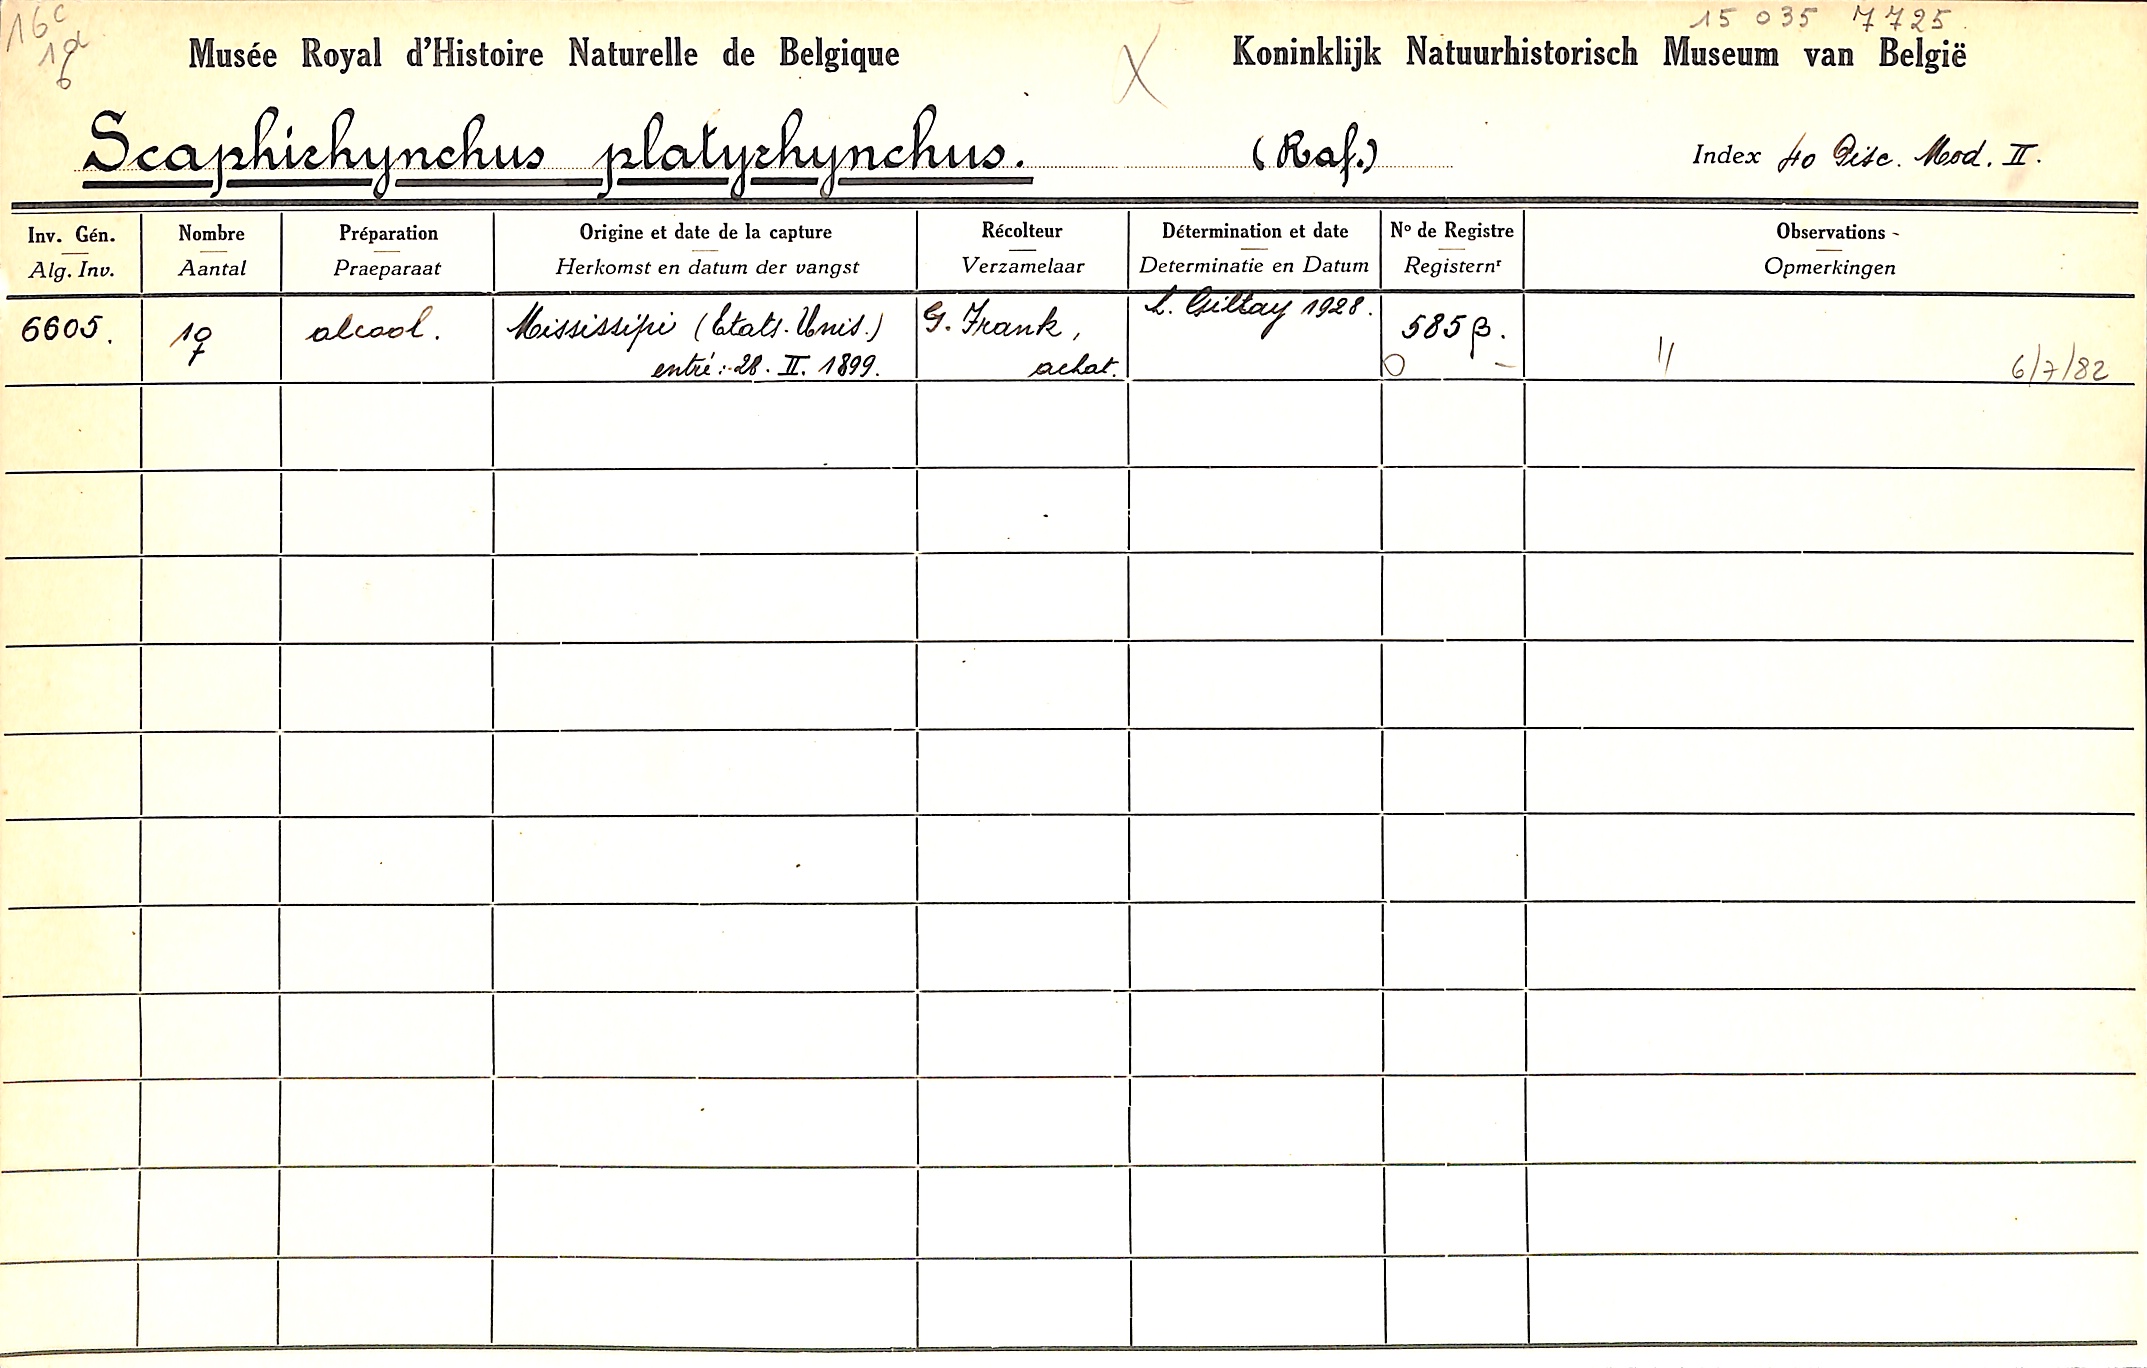 16c 15 035 7725
1a
b
Musée Royal d'Histoire Naturelle de Belgique X Koninklijk Natuurhistorisch Museum van België
Scaphirhynchus platyrhynchus. (Raf.) Index 40 Pisc. Mod. II.
Inv. Gén. Nombre Préparation Origine et date de la capture Récolteur Détermination et date No de Registre Observations
Alg. Inv. Aantal Praeparaat Herkomst en datum der vangst Verzamelaar Determinatie en Datum Registernr Opmerkingen
6605. 1♀ alcool. Mississipi (Etats-Unis.) G. Frank, L. Giltay 1928. 585β.
entré: 28. II. 1899. achat. O – // 6/7/82